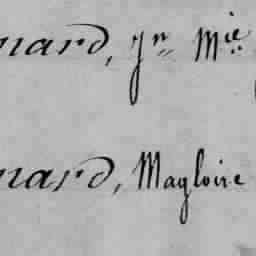 nard, Jn Mie
nard, Magloire